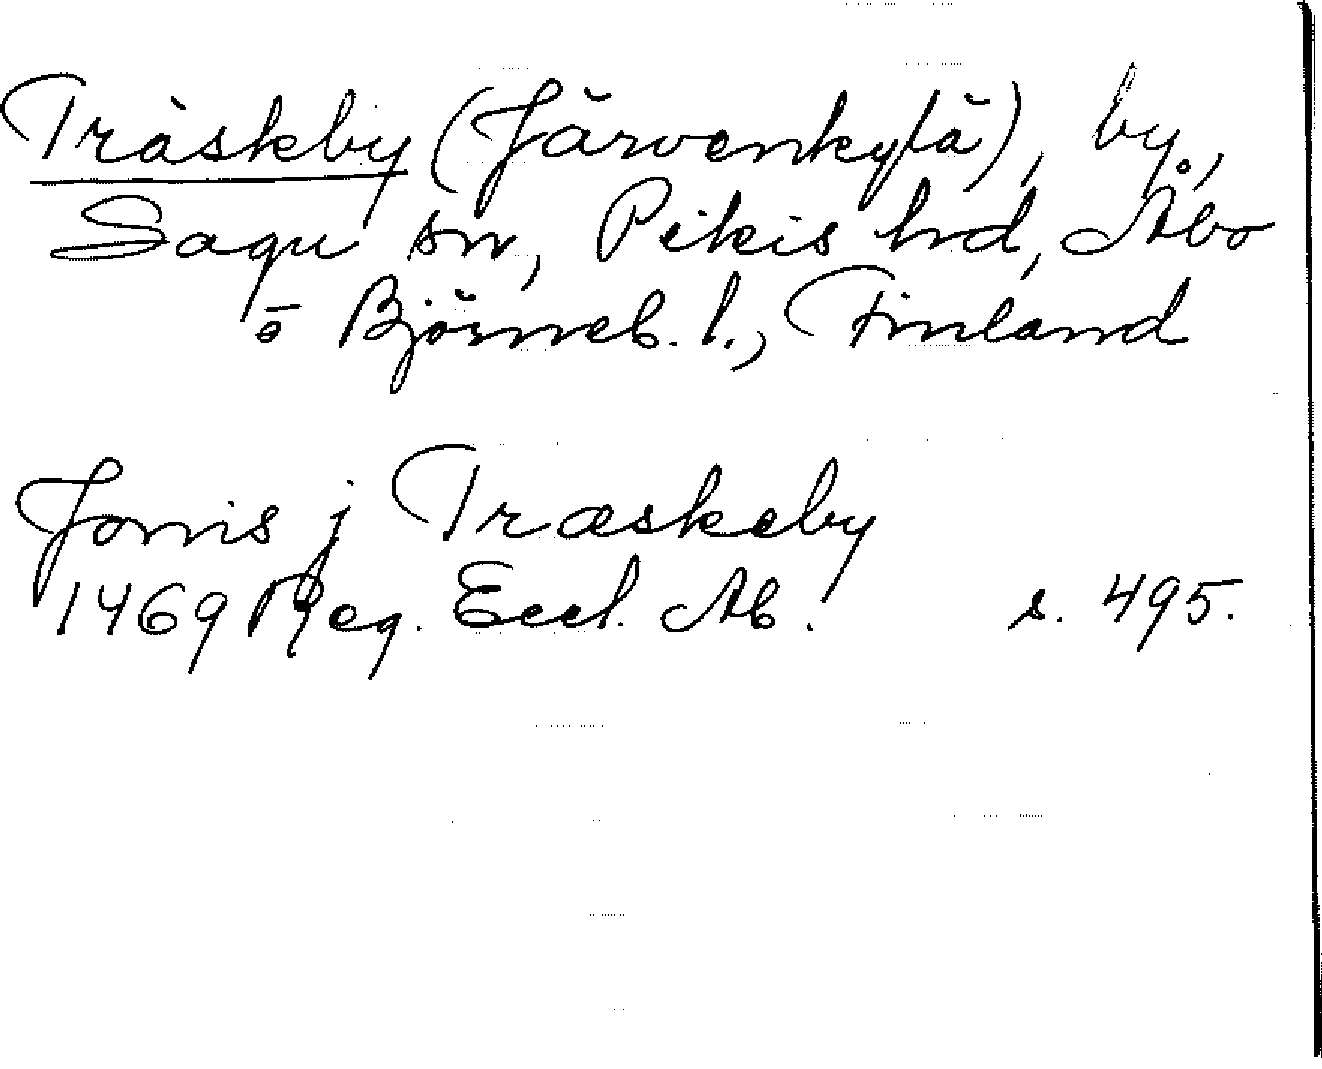 Träskby (Järvenkylä), by,
Sagu sn, Pikis hrd, Åbo
o Björneb. l., Finland
Jonis j Træskeby
1469 Reg. Eccl. Ab. s. 495.